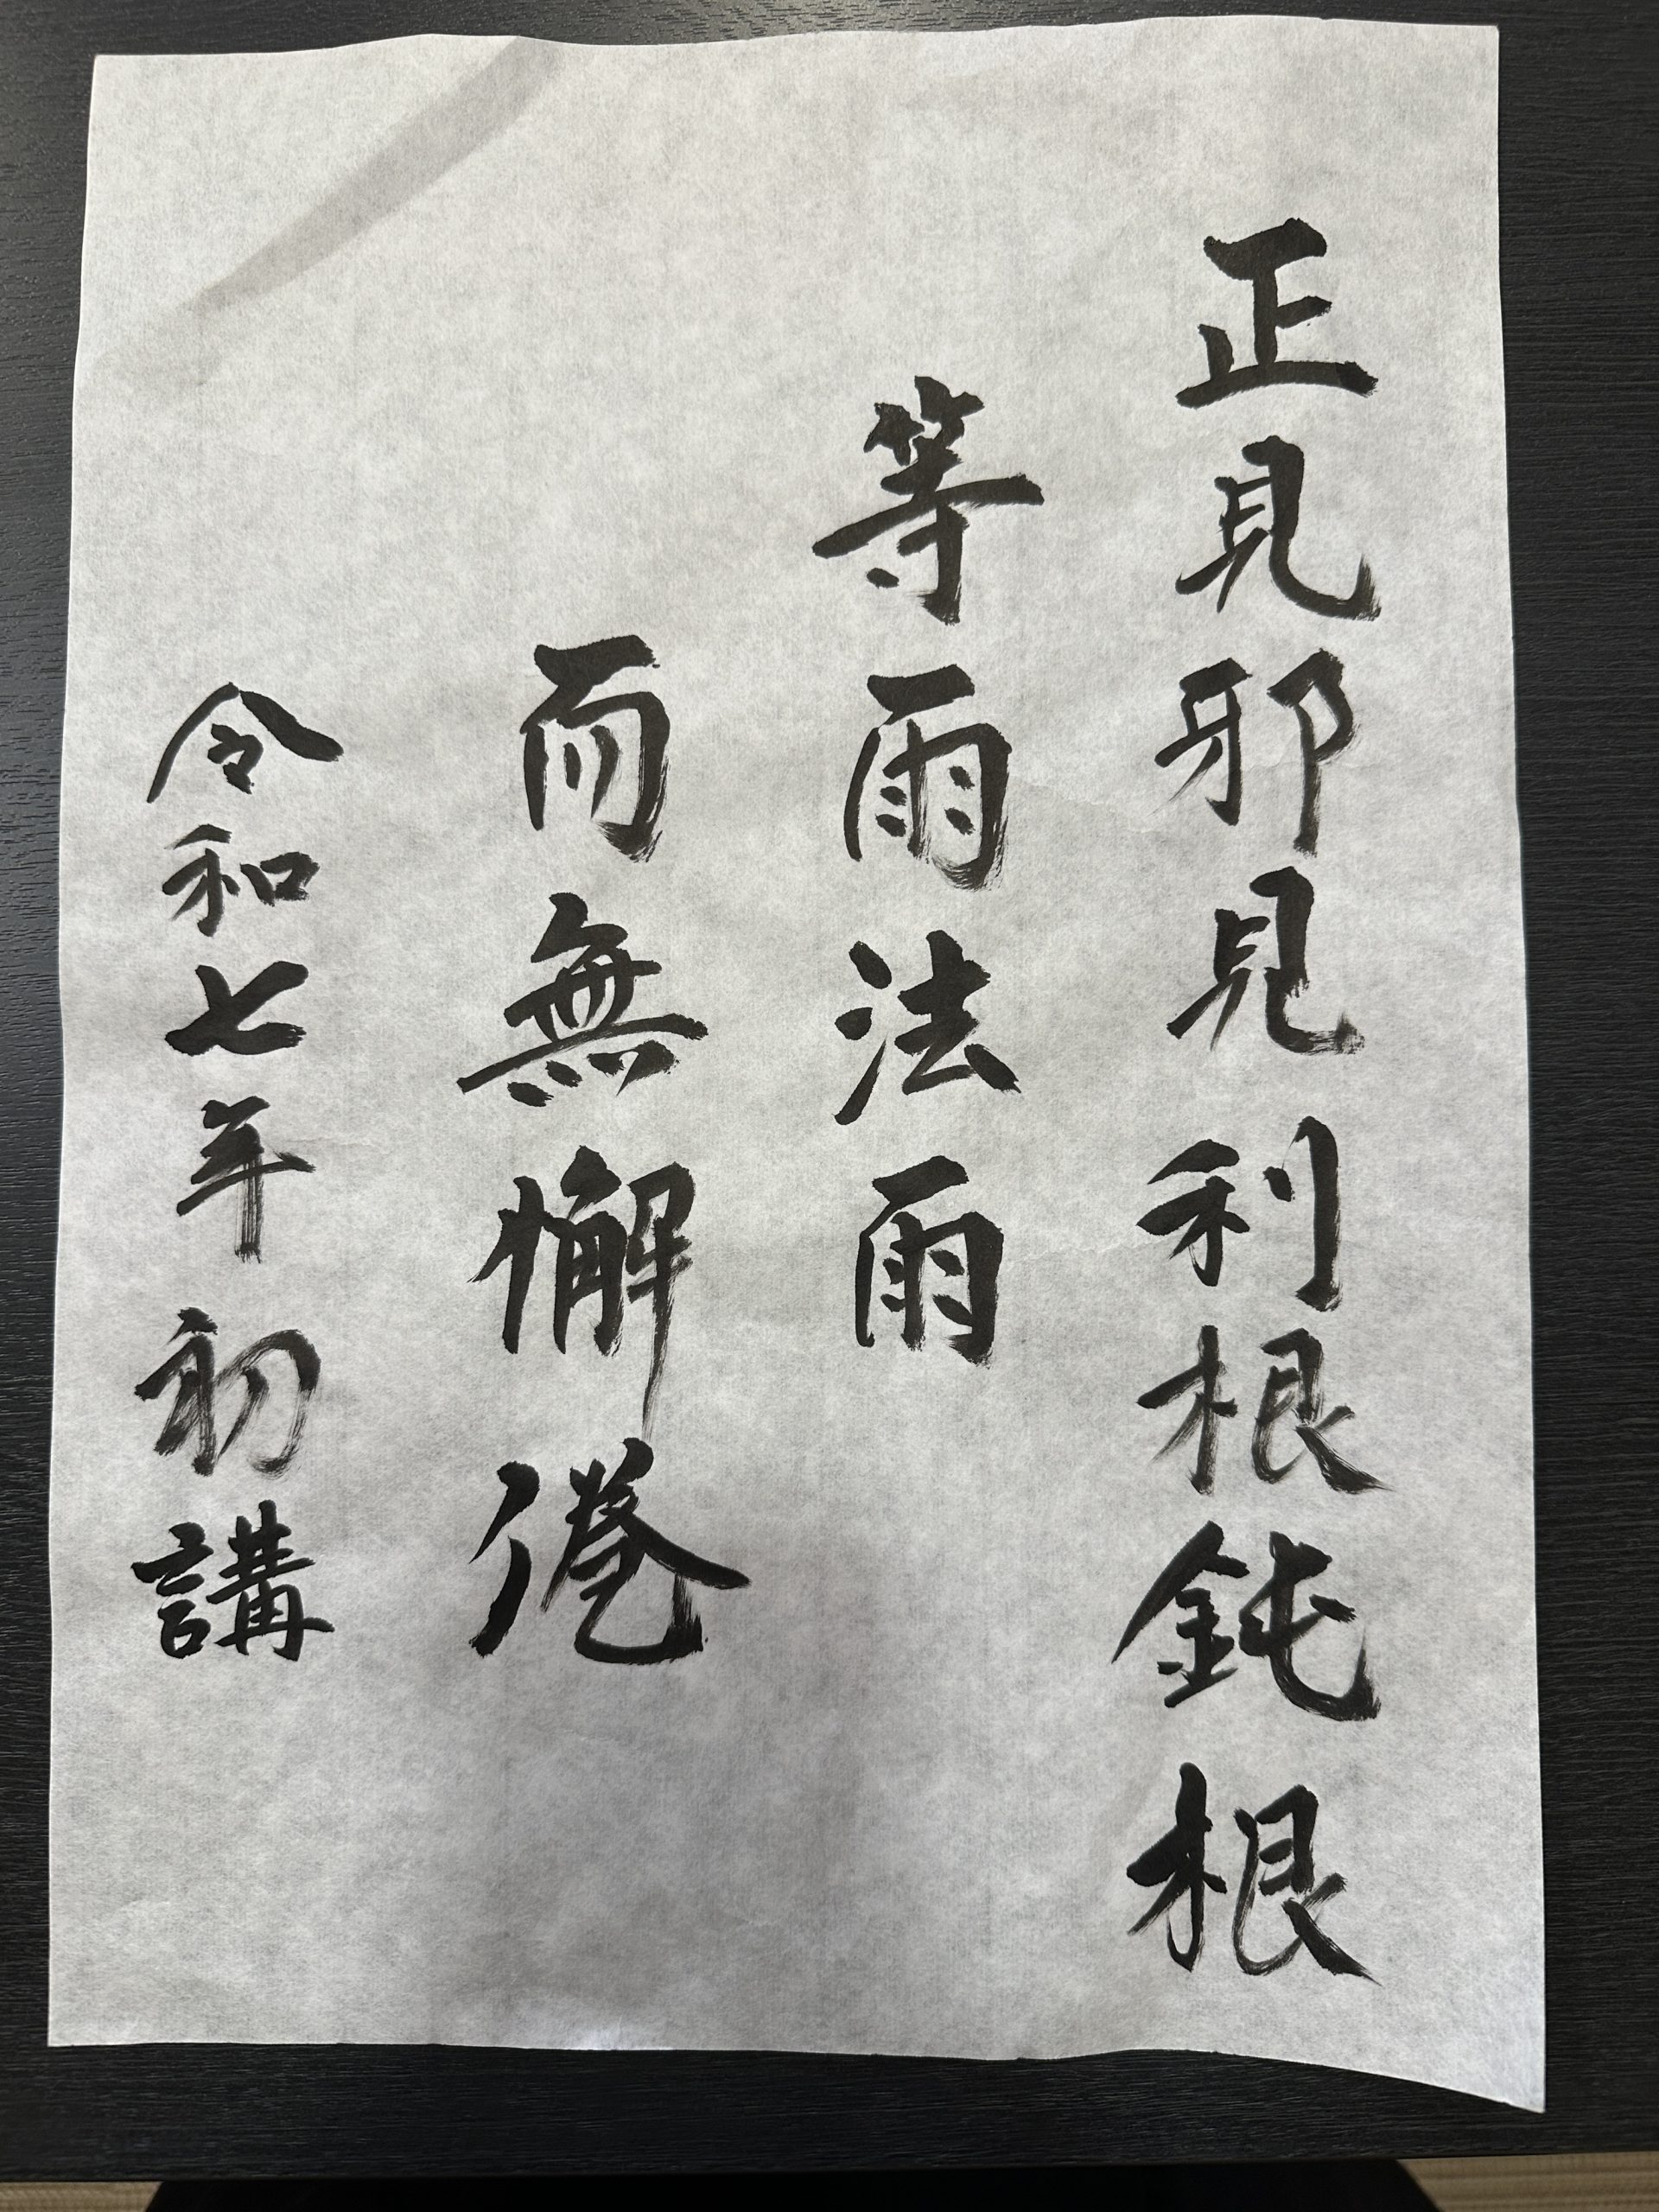 正見邪見利根鈍根
等雨法雨
而無懈倦
令和七年初講